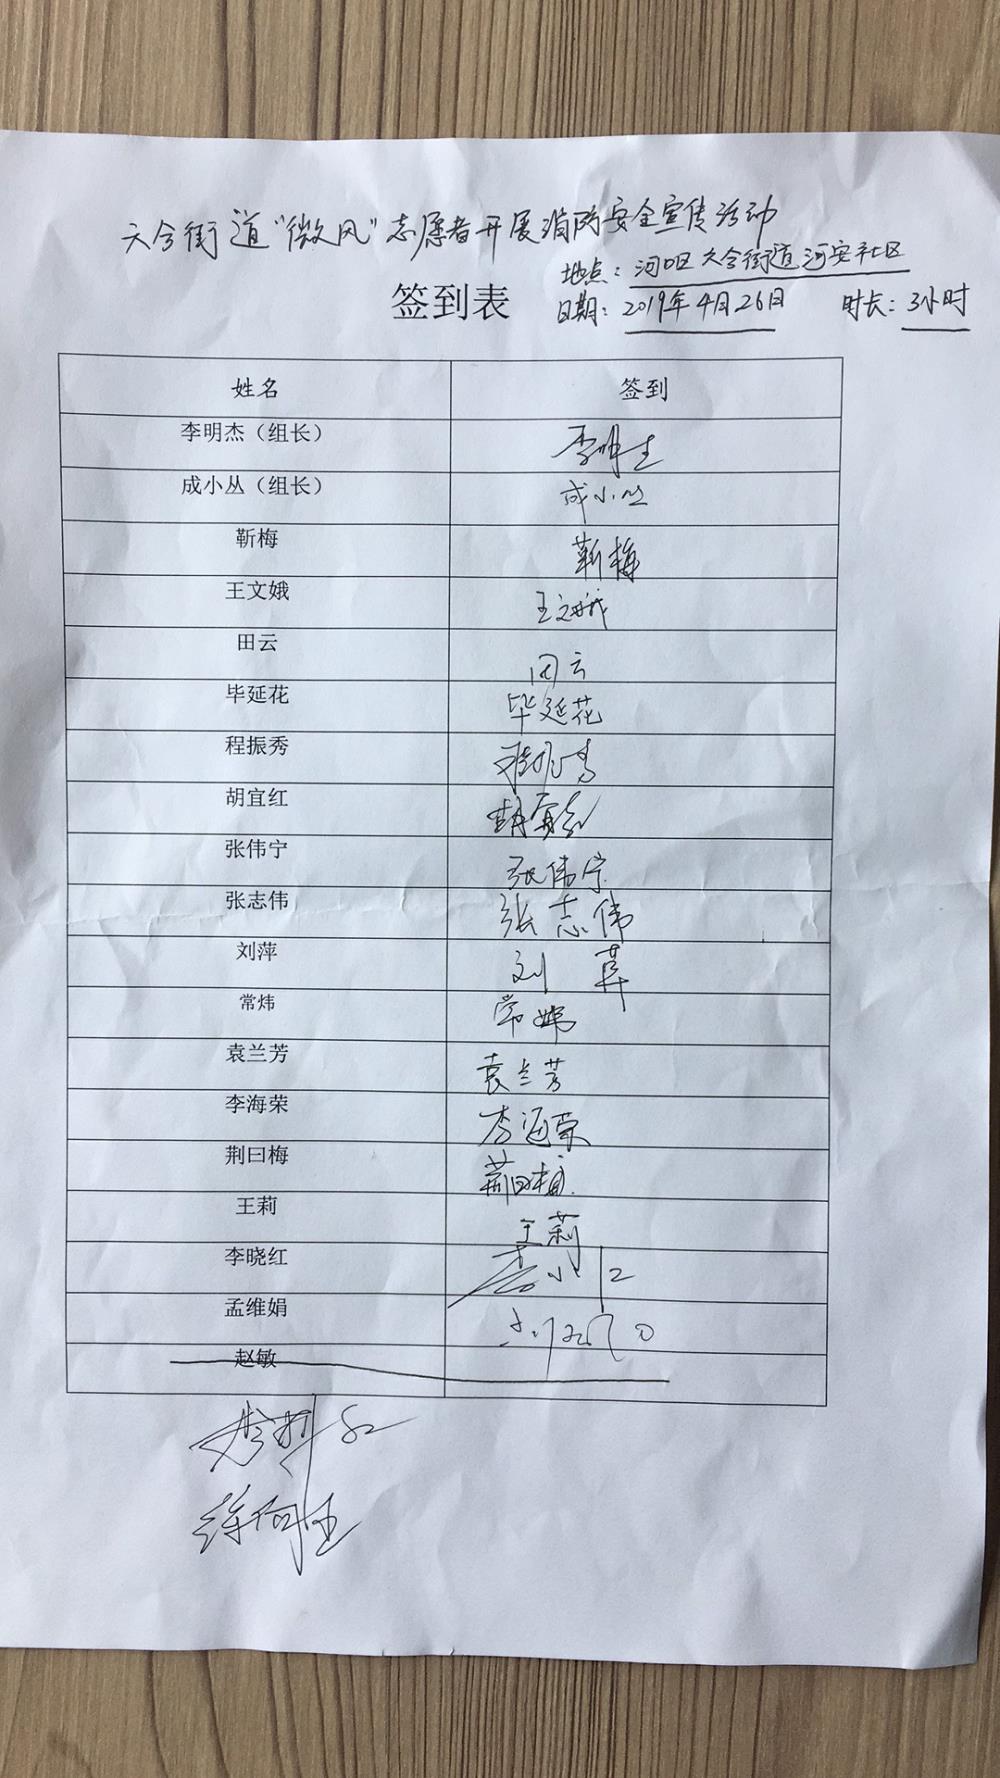 六合街道“微风”志愿者开展消防安全宣传活动
地点：河口区六合街道河安社区
签到表 日期：2019年4月26日 时长：3小时
姓名 签到
李明杰（组长） 李明杰
成小丛（组长） 成小丛
靳梅 靳梅
王文娥 王文娥
田云 田云
毕延花 毕延花
程振秀 程振秀
胡宜红 胡宜红
张伟宁 张伟宁
张志伟 张志伟
刘萍 刘萍
常炜 常炜
袁兰芳 袁兰芳
李海荣 李海荣
荆曰梅 荆曰梅
王莉 王莉
李晓红
孟维娟
赵敏